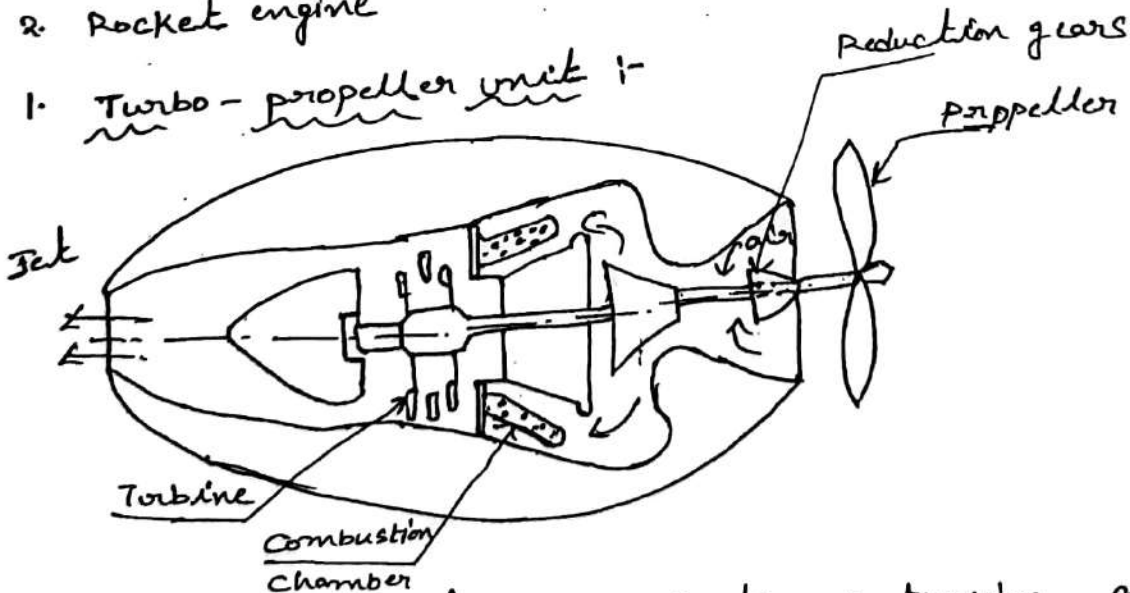 2. Rocket engine
1. Turbo-propeller unit :-
Reduction gears
Propeller
air
Jet
Turbine
Combustion
Chamber